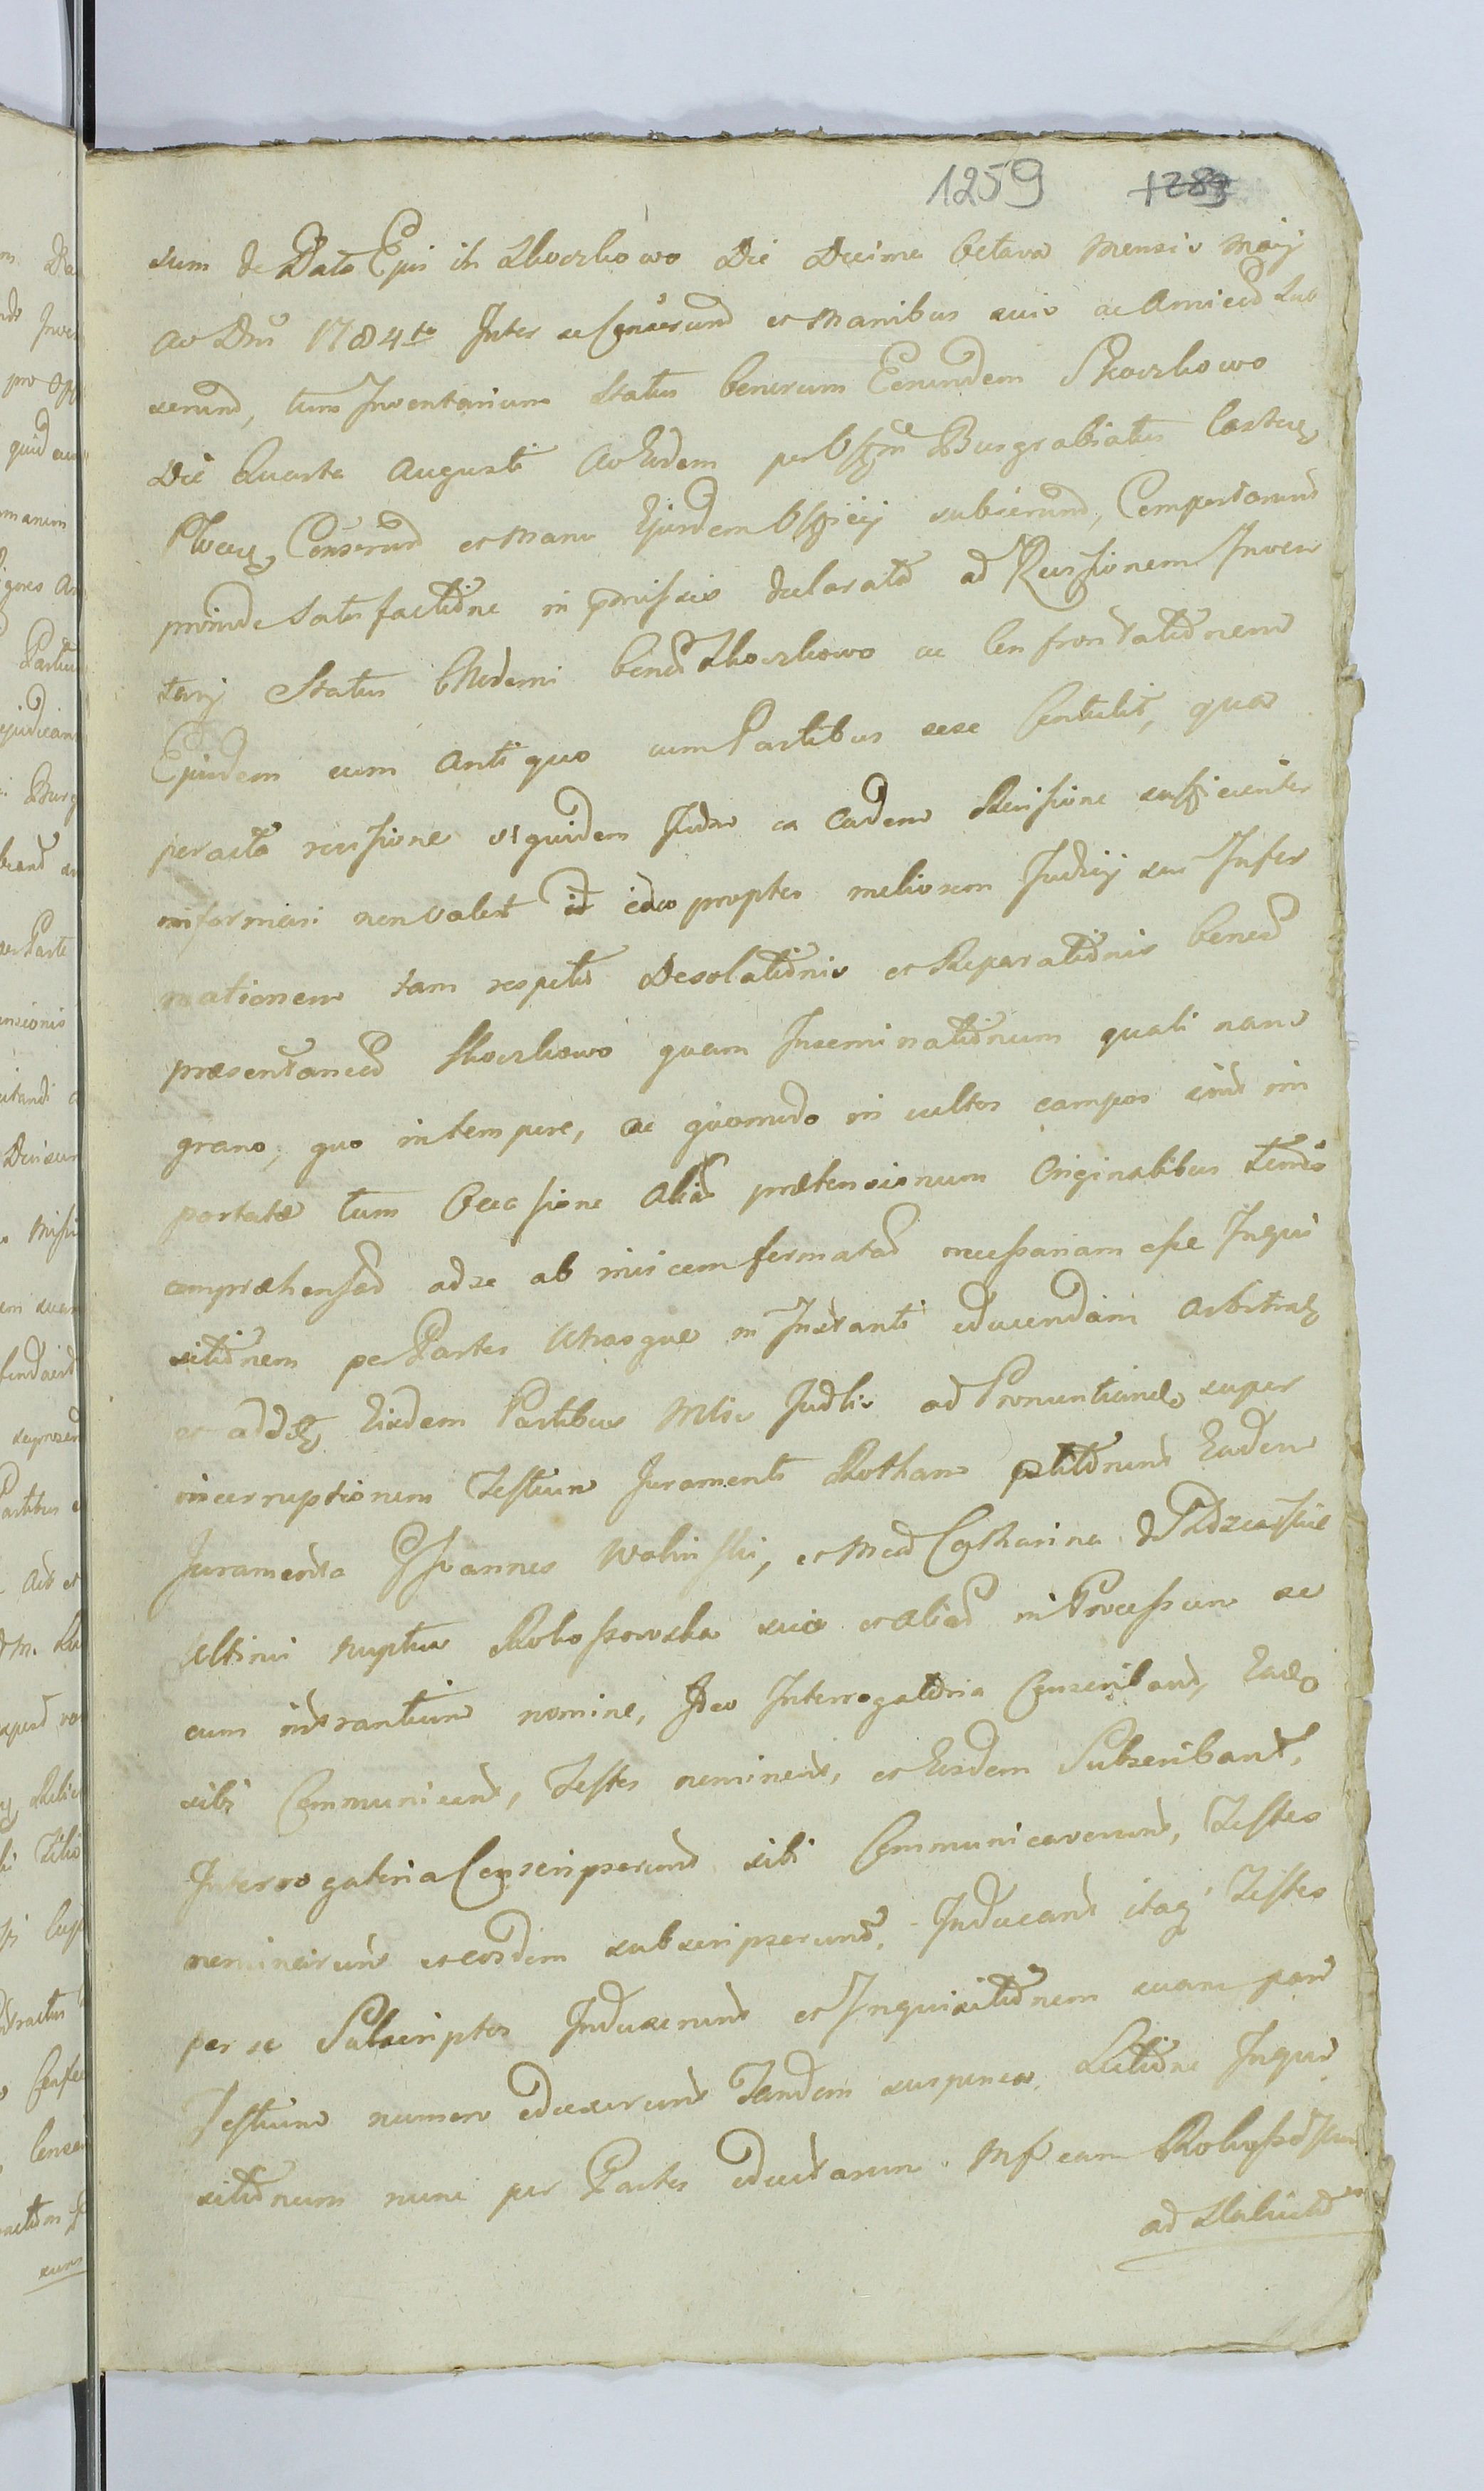 1259 1289
sum de Dato Ejus in Skoczkowo Die Decima Octava Mensis Maij
Ao Dni 1784to Inter se Conserund et Manibus suis ac Amicod Sub
serund, tum Inventarium Status bonorum Eorundem Skoczkowo
Die Quarta Augusti Ao Eodem per Offm Burgrabiatus Castr
Ploceg Conserund et Manu Ejusdem Officij subserund, Comportarund
proinde Satisfactione in pmissis declarata ad Revisionem Inven
tarij Status Moderni bonod Skoczkowo ac Confrontationem
Ejusdem cum Antiquo cum Partibus sese Contulit, qua
peracta revisione siquidem Judm ex Eadem Revisione sufficienter
informari non valet id ideo propter meliorem Judicij sui Infor
mationem tam respectu Desolationis et Reparationis bonod
praesentaneod Skoczkowo quam Inseminationum quali nam
grano, quo in tempore, ac quomodo in cultos campos sint im
portata tum Occasione Aliad praetensionum Originalibus Termis
compraehensad ad se ab invicem formatad necessariam esse Inqui
sitionem per Partes Utrasque in Instanti educendam arbitra
et addt Eisdem Partibus Mlis Judlis ad Pronuntiand super
incorruptionem Testium Juramenti Rotham Eadem
Juramenta GJoannes Wolinski, et Mad Catharina
Ultimi nuptu suis et aliod in Processum se
cum intrantium nomine, Ideo Interrogatoria Conscribant, Ead
sibi Communicent, Testes nominent, et Eosdem Subscribant,
Interrogatoria Conscripserund sibi Communicaverunt, Testes
nominarunt et eosdem subscripserund, Inducant itaq Testes
per se Subscriptos Induxerunt et Inquisitionem suam pari
Testium numero eduxerunt Tandem suspensa Lectione Inqui
sitionum nunc per Partes eductarum
ad